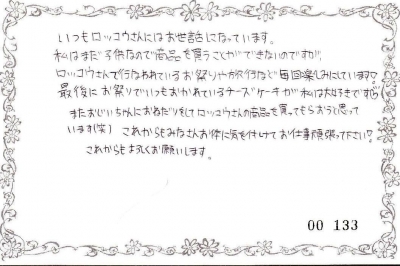 いつもロッコウさんにはお世話になっています。
私はまだ子供なので商品を買うことができないのですが、
ロッコウさんで行なわれているお祭りや旅行など毎回楽しみにしています♡
最後にお祭りでいつもおかれているチーズケーキが私は大好きです♡
またおじいちゃんにおねだりをしてロッコウさんの商品を買ってもらおうと思って
います(笑) これからもみなさんお体に気を付けてお仕事頑張って下さい♡
これからも宜しくお願いします。
00 133